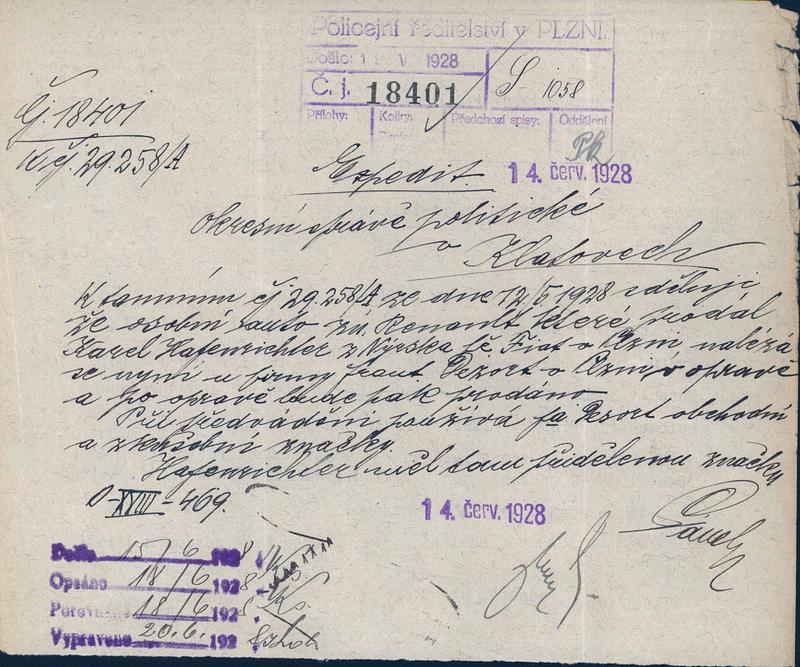 Policejní ředitelství v PLZNI.
Došlo: 1 V 1928
Č. j. 18401
S 1058
Přílohy: Kolky: Předchozí spisy: Oddělení
Čj. 18401
K čj. 29.258/A
Expedit.
14. červ. 1928
Okresní správě politické
v Klatovech
K tamnímu čj 29.258/A ze dne 12/5 1928 sděluji
že osobní auto zn. Renault které prodal
Karel Hafenrichter z Nýrska fě. Fiat v Plzni, nalézá
se nyní u firmy frant. Dezort v Plzni, v opravě
a po opravě bude pak prodáno
Při předvádění používá fa Dezort obchodní
a zkušební značky.
Hafenrichter měl tam přidělenou značku
O-XVIII-469.
14. červ. 1928
Došlo 15/6 1928
Opsáno 18/6 1928
Porovnáno 18/6 1928
Vypraveno 20.6. 192